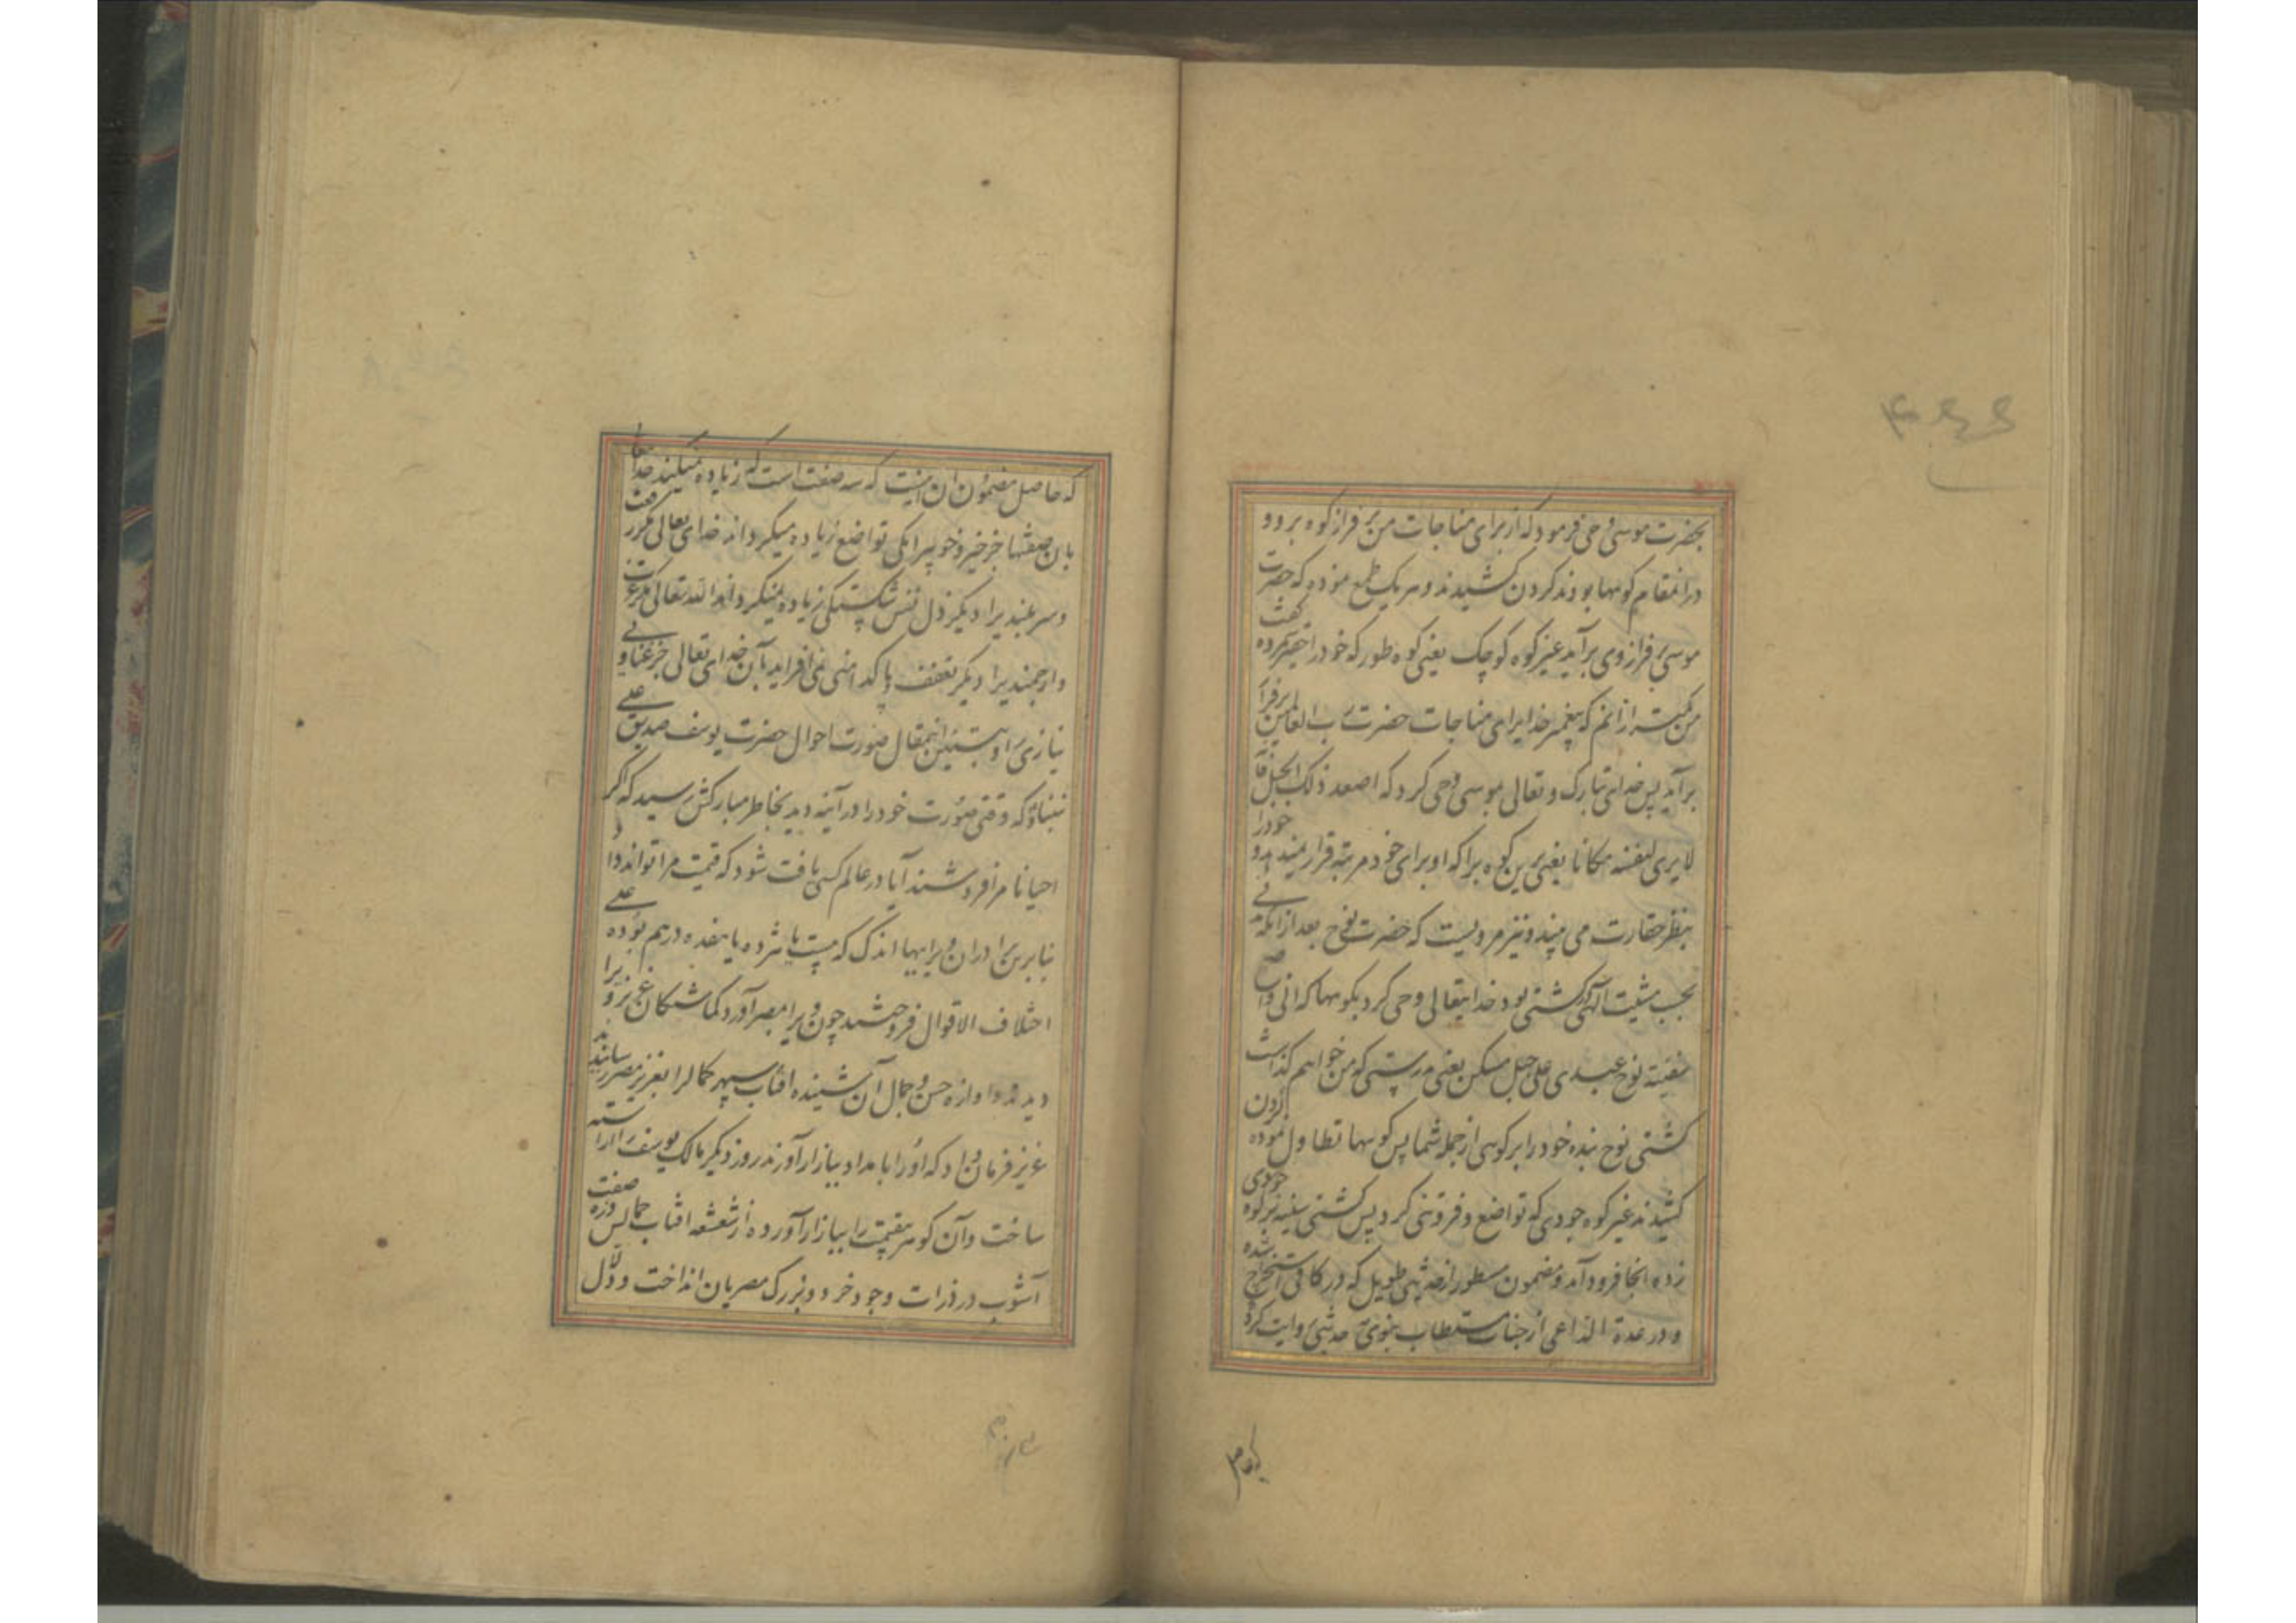 ۴۶۶
بحضرت موسی وحی فرمود که از برای مناجات من بر فراز کوه برو و
در انمقام کوهها بودند کردن کشیدند و هر یک طمع نموده که حضرت
موسی بر فراز وی برآید غیر کوه کوچک یعنی کوه طور که خود را حقیر شمرده گفت
من کمتر از انم که پیغمبر خدا برای مناجات حضرت رب العالمین بر فراز
برآید پس خدای تبارک و تعالی بموسی وحی کرد که اصعد ذلک الجبل فانه
لا یری لنفسه مکانا یعنی برین کوه برا که او برای خود مرتبه قرار نمیدهد و خود را
بنظر حقارت می بیند و نیز مرویست که حضرت نوح بعد از انکه
بحسب مشیت الهی در کشتی بود خدایتعالی وحی کرد بکوهها که انی واضع
سفینة نوح عبدی علی جبل منکن یعنی بدرستی که من خواهم گذاشت
کشتی نوح بنده خود را بر کوهی از جمله شما پس کوهها تطاول نموده کردن
کشیدند غیر کوه جودی که تواضع و فروتنی کرد پس کشتی سینه بر کوه جودی
زده انجا فرود آمد و مضمون مسطور از حدیثی طویل که در کافی استخراج شده
و در عدة الداعی از جناب مستطاب نبوی حدیثی روایت کرده
که حاصل مضمون ان اینست که سه صفت است که زیاده نمیکند خدا
بان صفتها جز خیر و خوبی را یکی تواضع زیاده نمیکرداند خدای تعالی مکر رفعت
و سر بلندی را دیکر ذل نفس شکستکی زیاده نمیکرداند الله تعالی مکر عزت
و ارجمندی را دیکر تعفف و پاکدامنی نمی افزاید بآن خدای تعالی جز غنا و بی
نیازی را و تبیین اینمقال صورت احوال حضرت یوسف صدیق علی
نبینا و که وقتی صورت خود را در آینه دید بخاطر مبارکش رسید که اکر
احیانا مرا فروشند آیا در عالم کسی یافت شود که قیمت مرا تواند داد
بنابرین برادران ویرا ببها اندک که بیست یا شزده یا هفده درهم بوده علی
اختلاف الاقوال فروختند چون ویرا بمصر آوردند کماشتکان عزیز ویرا
دیدند و اوازه حسن و جمال آن شینده افتاب سپهر کمال را بعزیز مصر رسانیدند
عزیز فرمان داد که او را بامداد ببازار آورند روز دیکر مالک یوسف را اراسته
ساخت و آن کوهر بیقیمت را ببازار آورده از شعشعه افتاب جمالش ذره صفت
آشوب در ذرات وجود خرد و بزرک مصریان انداخت و دلال